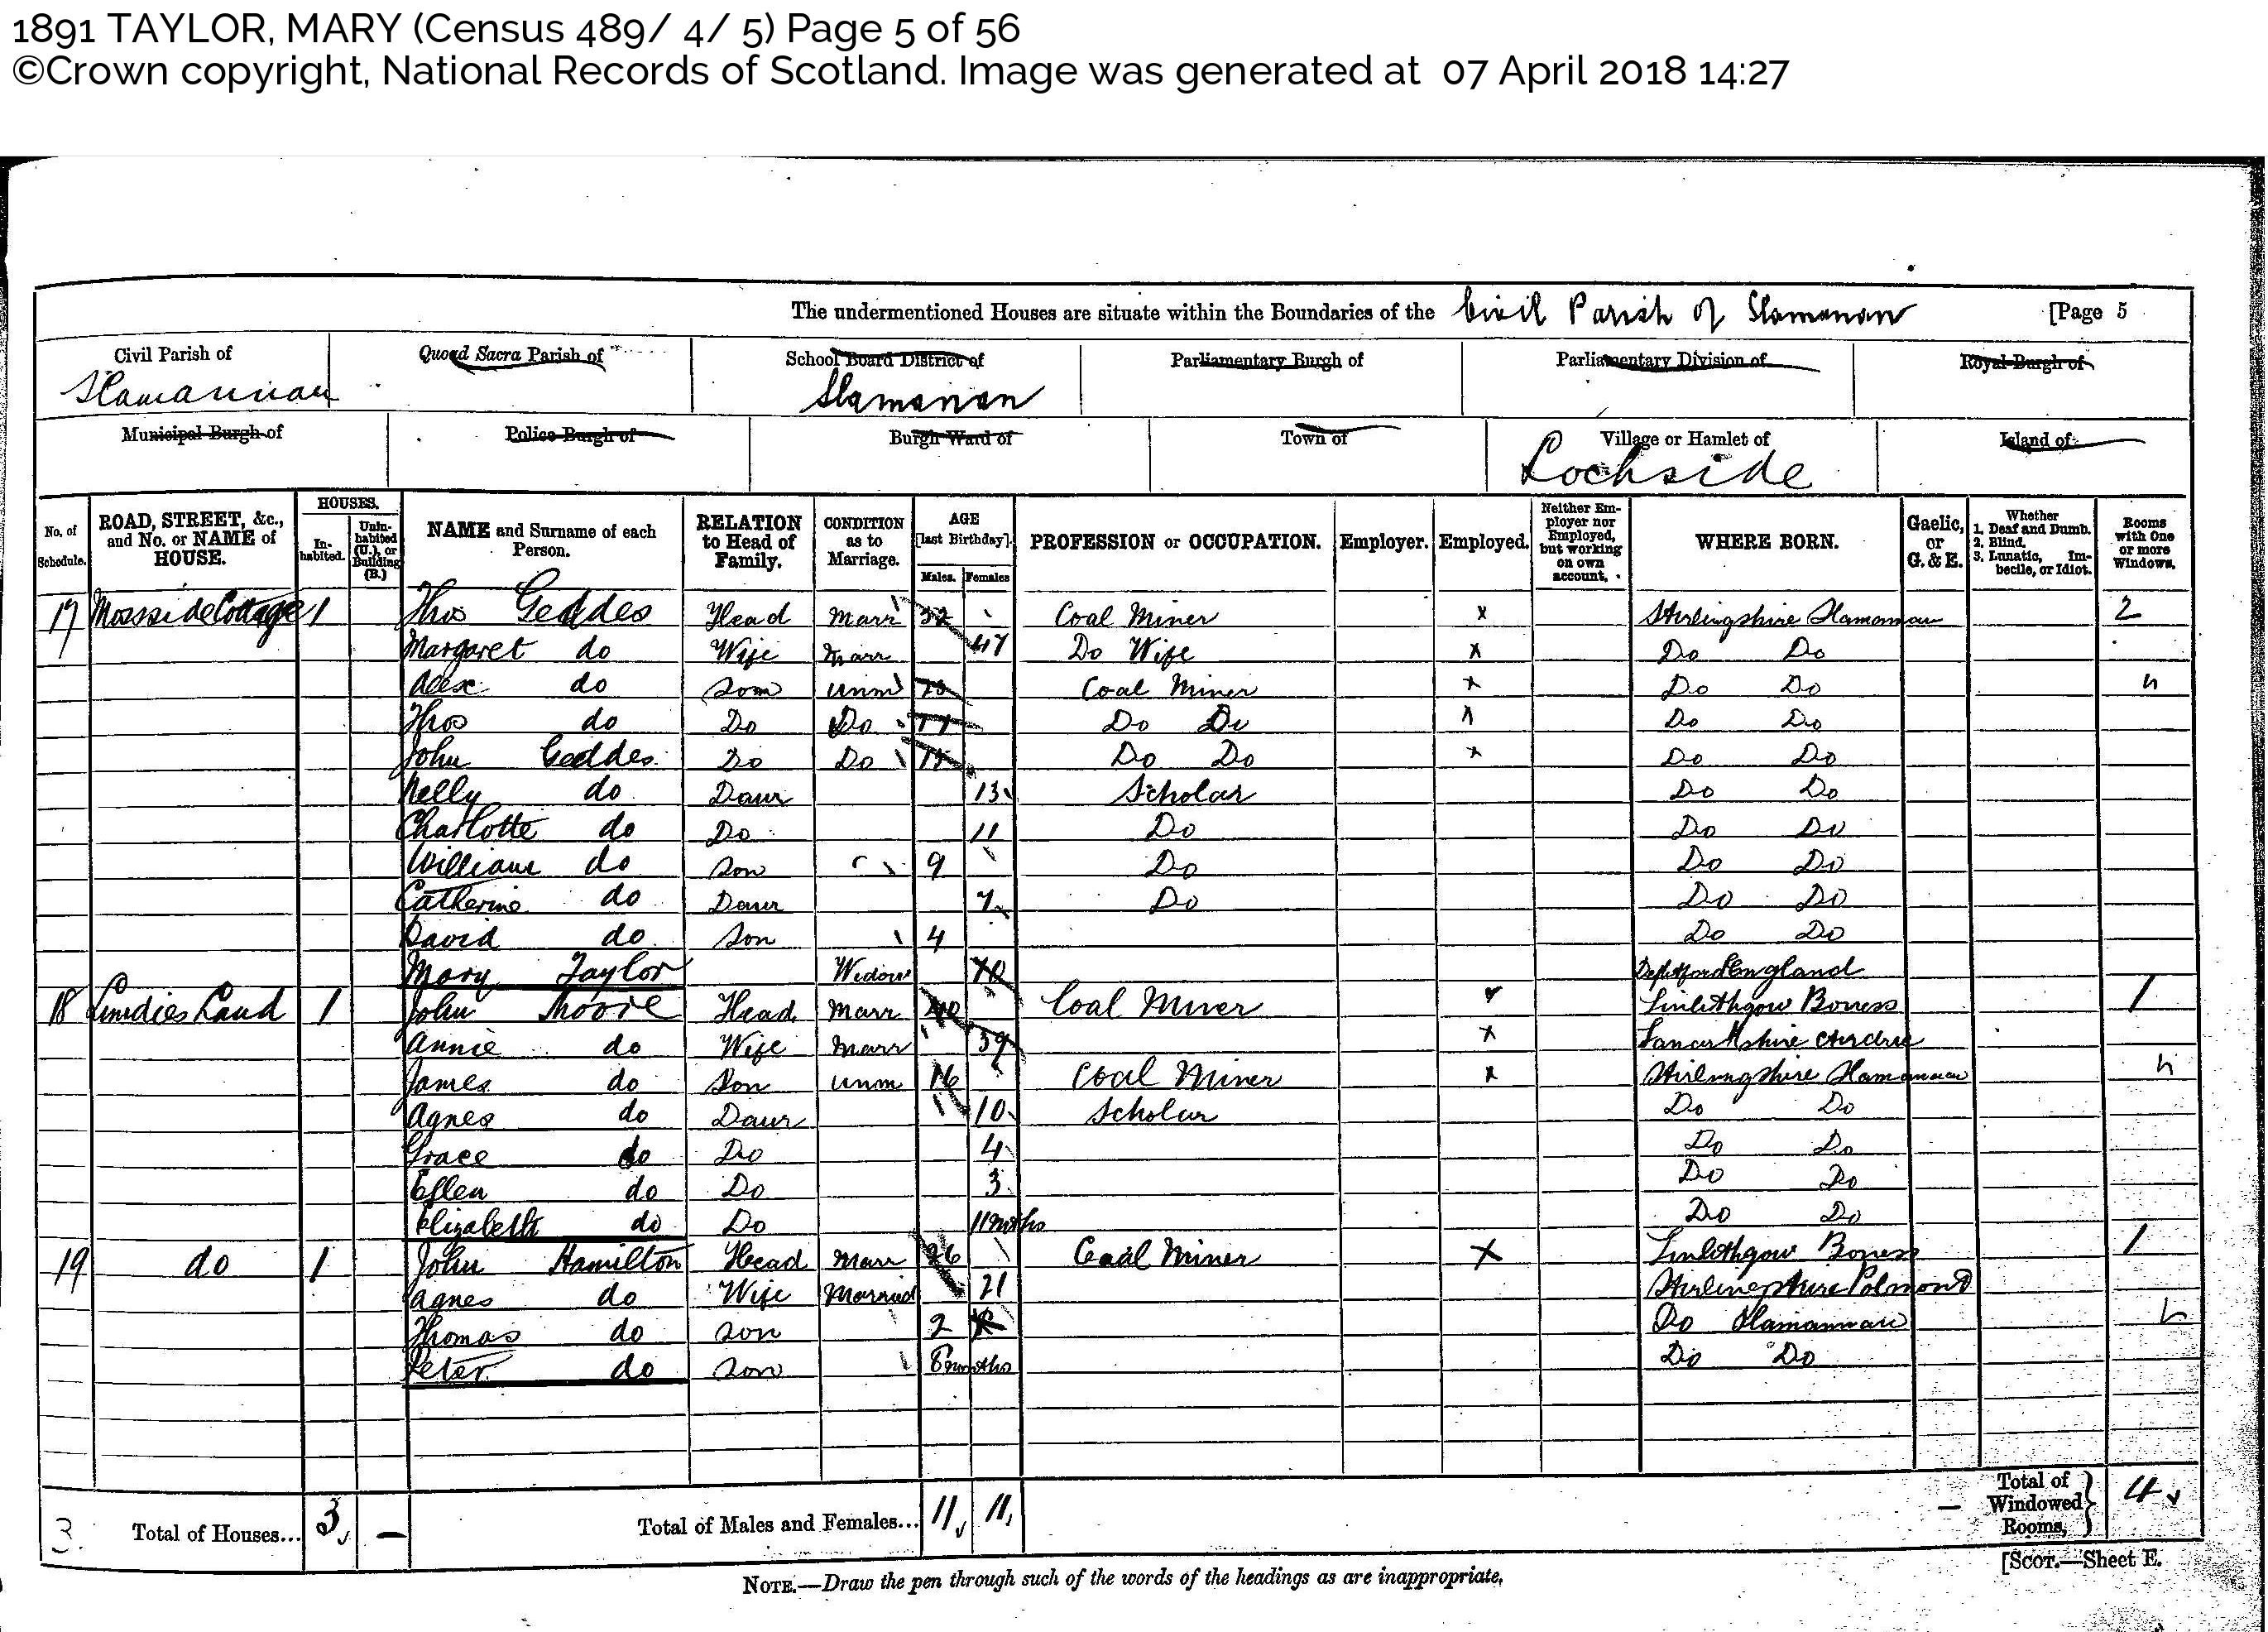 1891 TAYLOR, MARY (Census 489/ 4/ 5) Page 5 of 56
©Crown copyright, National Records of Scotland. Image was generated at 07 April 2018 14:27
The undermentioned Houses are situate within the Boundaries of the Civil Parish of Slamanan [Page 5
Civil Parish of Quoad Sacra Parish of School Board District of Parliamentary Burgh of Parliamentary Division of Royal Burgh of
Slamannan Slamanan
Municipal Burgh of Police Burgh of Burgh Ward of Town of Village or Hamlet of Island of
Lochside
No. of Schedule. ROAD, STREET, &c., and No. or NAME of HOUSE. HOUSES. Inhabited. Uninhabited (U.), or Building (B.) NAME and Surname of each Person. RELATION to Head of Family. CONDITION as to Marriage. AGE [last Birthday]. Males. Females PROFESSION or OCCUPATION. Employer. Employed. Neither Employer nor Employed, but working on own account. WHERE BORN. Gaelic, or G. & E. Whether 1. Deaf and Dumb. 2. Blind. 3. Lunatic, Imbecile, or Idiot. Rooms with One or more Windows.
17 Mossside Cottage 1 Thos Geddes Head Marr Coal Miner x Stirlingshire Slamannan 2
Margaret do Wife Marr 47 Do Wife x Do Do
Alex do Son Unm Coal Miner x Do Do
Thos do Do Do Do Do x Do Do
John Geddes Do Do Do Do x Do Do
Nelly do Daur 13 Scholar Do Do
Charlotte do Do 11 Do Do Do
William do Son 9 Do Do Do
Catherine do Daur 7 Do Do Do
David do Son 4 Do Do
Mary Taylor Widow 70 England
18 Land 1 John Moore Head Marr 40 Coal Miner x Linlithgow Boness 1
Annie do Wife Marr 39 x Lanarkshire Airdrie
James do Son Unm 16 Coal Miner x Stirlingshire Slamannan
Agnes do Daur 10 Scholar Do Do
Grace do Do 4 Do Do
Ellen do Do 3 Do Do
Elizabeth do Do 11 mths Do Do
19 do 1 John Hamilton Head Marr 26 Coal Miner x Linlithgow Boness 1
Agnes do Wife Married 21 Stirlingshire Polmont
Thomas do Son 2 Do Slamannan
Peter do Son months Do Do
3 Total of Houses... 3 – Total of Males and Females... 11 11 – Total of Windowed Rooms, 4
[SCOT.—Sheet E.
NOTE.—Draw the pen through such of the words of the headings as are inappropriate.